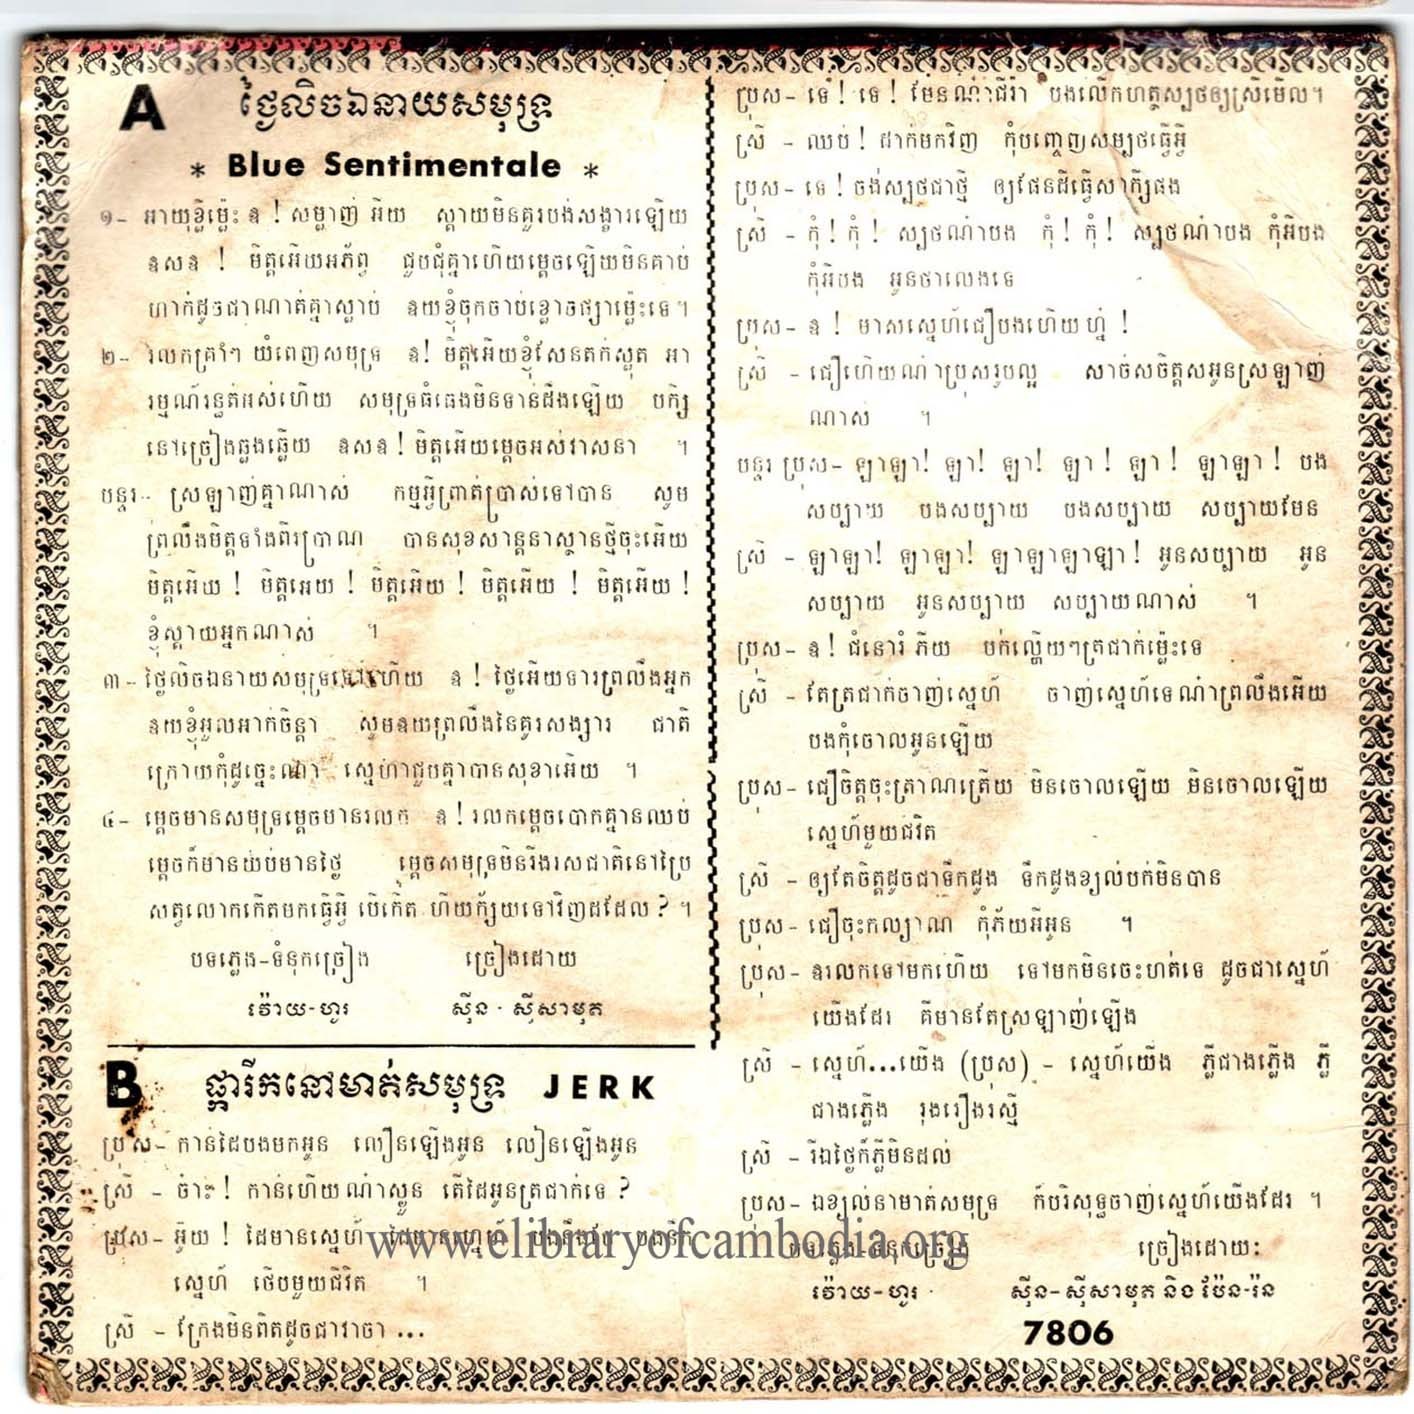 A ថ្ងៃលិចឯនាយសមុទ្រ
* Blue Sentimentale *
១- អាយុខ្លីម្ល៉េះ ឱ ! សម្លាញ់ អើយ ស្ដាយមិនគួរបង់សង្ខារឡើយ
ឱសឱ ! មិត្តអើយអភ័ព្វ ជួបជុំគ្នាហើយម្ដេចឡើយមិនគាប់
ហាក់ដូចជាណាត់គ្នាស្លាប់ ឱយខ្ញុំចុកចាប់ខ្លោចផ្សាម្ល៉េះទេ ។
២- រលកគ្រាំៗ យំពេញសមុទ្រ ឱ! មិត្តអើយខ្ញុំសែនតក់ស្លុត អា
រម្មណ៍រន្ធត់អស់ហើយ សមុទ្រធំធេងមិនទាន់ដឹងឡើយ បក្សី
នៅច្រៀងឆ្លងឆ្លើយ ឱសឱ ! មិត្តអើយម្ដេចអស់វាសនា ។
បន្ទរ- ស្រឡាញ់គ្នាណាស់ កម្មអ្វីព្រាត់ប្រាស់ទៅបាន សូម
ព្រលឹងមិត្តទាំងពីរប្រាណ បានសុខសាន្តនាស្ថានថ្មីចុះអើយ
មិត្តអើយ ! មិត្តអើយ ! មិត្តអើយ ! មិត្តអើយ ! មិត្តអើយ !
ខ្ញុំស្ដាយអ្នកណាស់ ។
៣- ថ្ងៃលិចឯនាយសមុទ្រទៅហើយ ឱ ! ថ្ងៃអើយទារព្រលឹងអ្នក
ឱយខ្ញុំអួលអាក់ចិន្ដា សូមឱយព្រលឹងនៃគូរសង្សារ ជាតិ
ក្រោយកុំដូច្នេះណា ស្នេហាជួបគ្នាបានសុខាអើយ ។
៤- ម្ដេចមានសមុទ្រម្ដេចមានរលក ឱ ! រលកម្ដេចបោកគ្មានឈប់
ម្ដេចក៏មានយប់មានថ្ងៃ ម្ដេចសមុទ្រមិនរីងរសជាតិនៅប្រៃ
សត្វលោកកើតមកធ្វើអ្វី បើកើត ហើយក្ស័យទៅវិញដដែល ? ។
បទភ្លេង-ទំនុកច្រៀង ច្រៀងដោយ
វ៉ោយ-ហូរ ស៊ីន - ស៊ីសាមុត
B ផ្ការីកនៅមាត់សមុទ្រ JERK
ប្រុស- កាន់ដៃបងមកអូន លឿនឡើងអូន លឿនឡើងអូន
ស្រី - ច៎ាះ ! កាន់ហើយណ៎ាស្លួន តើដៃអូនត្រជាក់ទេ ?
ប្រុស- អ៊ូយ ! ដៃមានស្នេហ៍
ស្នេហ៍ ថើបមួយជីវិត ។
ស្រី - ក្រែងមិនពិតដូចជាវាចា ...
ប្រុស- ទេ ! ទេ ! មែនណ៎ាជីវ៉ា បងលើកហត្ថស្បថឲ្យស្រីមើល ។
ស្រី - ឈប់ ! ដាក់មកវិញ កុំបញ្ចេញសម្បថធ្វើអ្វី
ប្រុស- ទេ ! ចង់ស្បថជាថ្មី ឲ្យផែនដីធ្វើសាក្សីផង
ស្រី - កុំ ! កុំ ! ស្បថណ៎ាបង កុំ ! កុំ ! ស្បថណ៎ាបង កុំអីបង
កុំអីបង អូនថាលេងទេ
ប្រុស- ឱ ! មាសស្នេហ៍ជឿបងហើយហ្ន៎ !
ស្រី - ជឿហើយណ៎ាប្រុសរូបល្អ សាច់សចិត្តសអូនស្រឡាញ់
ណាស់ ។
បន្ទរ ប្រុស- ឡាឡា! ឡា! ឡា! ឡា ! ឡា ! ឡាឡា ! បង
សប្បាយ បងសប្បាយ បងសប្បាយ សប្បាយមែន
ស្រី - ឡាឡា! ឡាឡា! ឡាឡាឡាឡា! អូនសប្បាយ អូន
សប្បាយ អូនសប្បាយ សប្បាយណាស់ ។
ប្រុស- ឱ ! ជំនោរំភើយ បក់ល្ហើយៗត្រជាក់ម្ល៉េះទេ
ស្រី - តែត្រជាក់ចាញ់ស្នេហ៍ ចាញ់ស្នេហ៍ទេណ៎ាព្រលឹងអើយ
បងកុំចោលអូនឡើយ
ប្រុស- ជឿចិត្តចុះត្រាណត្រើយ មិនចោលឡើយ មិនចោលឡើយ
ស្នេហ៍មួយជីវិត
ស្រី - ឲ្យតែចិត្តដូចជាទឹកដូង ទឹកដូងខ្យល់បក់មិនបាន
ប្រុស- ជឿចុះកល្យាណ កុំភ័យអីអូន ។
ប្រុស- ឱរលកទៅមកហើយ ទៅមកមិនចេះហត់ទេ ដូចជាស្នេហ៍
យើងដែរ គឺមានតែស្រឡាញ់ឡើង
ស្រី - ស្នេហ៍...យើង (ប្រុស) - ស្នេហ៍យើង ភ្លឺជាងភ្លើង ភ្លឺ
ជាងភ្លើង រុងរឿងរស្មី
ស្រី - រីឯថ្ងៃក៏ភ្លឺមិនដល់
ប្រុស- ឯខ្យល់នាមាត់សមុទ្រ ក៏បរិសុទ្ធចាញ់ស្នេហ៍យើងដែរ ។
ច្រៀងដោយ:
វ៉ោយ-ហូរ ស៊ីន-ស៊ីសាមុត និង ប៉ែន-រ៉ន
7806
www.elibraryofcambodia.org